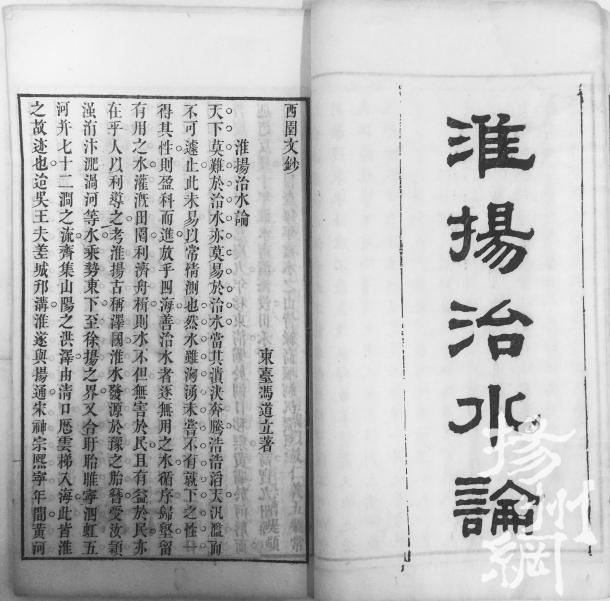 淮揚治水論
西園文鈔
淮揚治水論
東臺馮道立著
天下莫難於治水亦莫易於治水當其潰決奔騰浩浩滔天汎濫而
不可遽止此未易以常情測也然水雖洶湧未嘗不有就下之性一
得其性則盈科而進放乎四海善治水者逐無用之水循序歸壑留
有用之水灌溉田園利濟舟楫則水不但無害於民且有益於民亦
在乎人以利導之考淮揚古稱澤國淮水發源於豫之胎簪受汝潁
洧汴淝渦河等水乘勢東下至徐揚之界又合盱眙睢寧泗虹五
河并七十二澗之流齊集山陽之洪澤由清口歷雲梯入海此皆淮
之故迹也迨吳王夫差城邗溝淮遂與揚通宋神宗熙寧年間黃河
揚州網